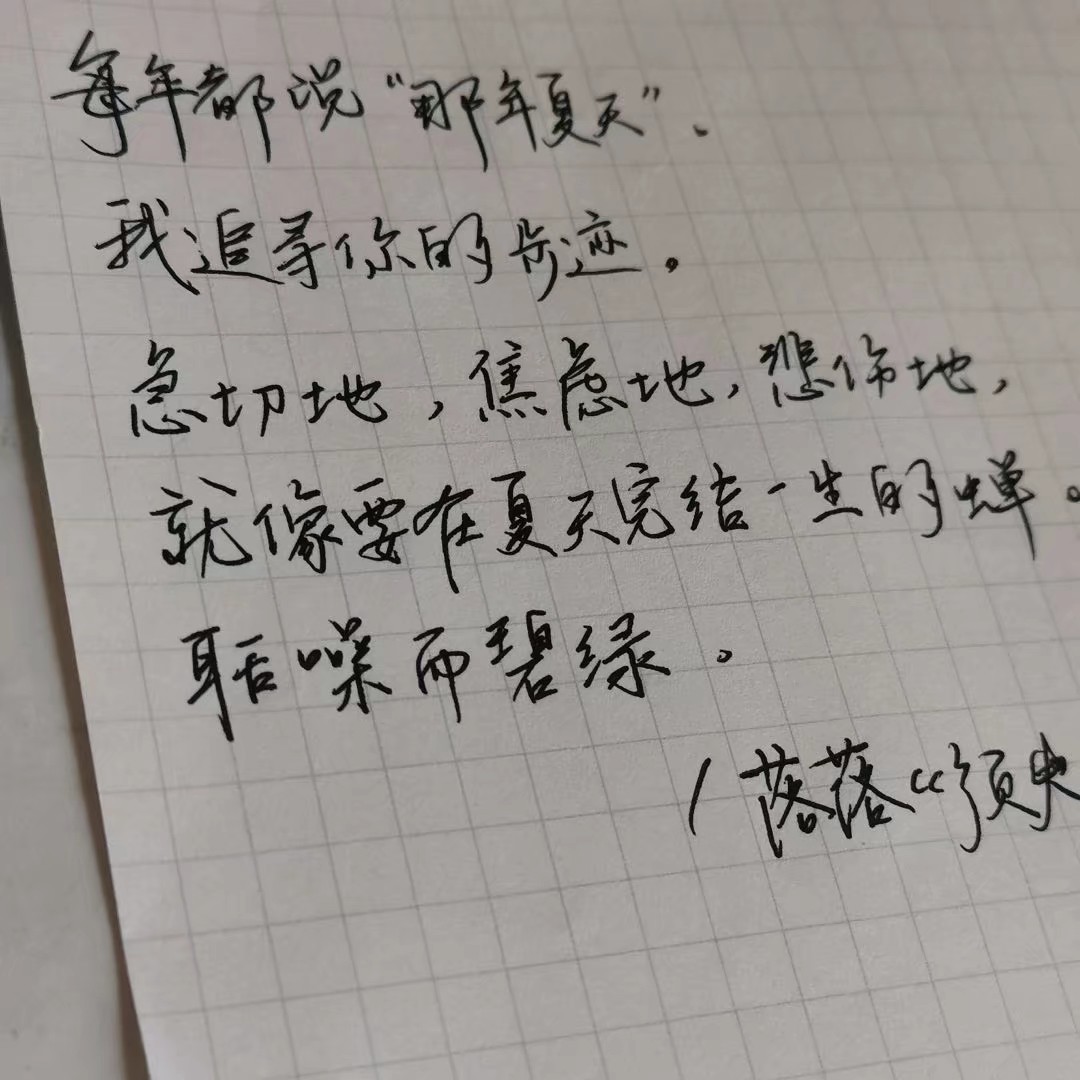 每年都说“那年夏天”、
我追寻你的步迹。
急切地，焦虑地，悲伤地，
就像要在夏天完结一生的蝉。
聒噪而碧绿。
/落落《须臾